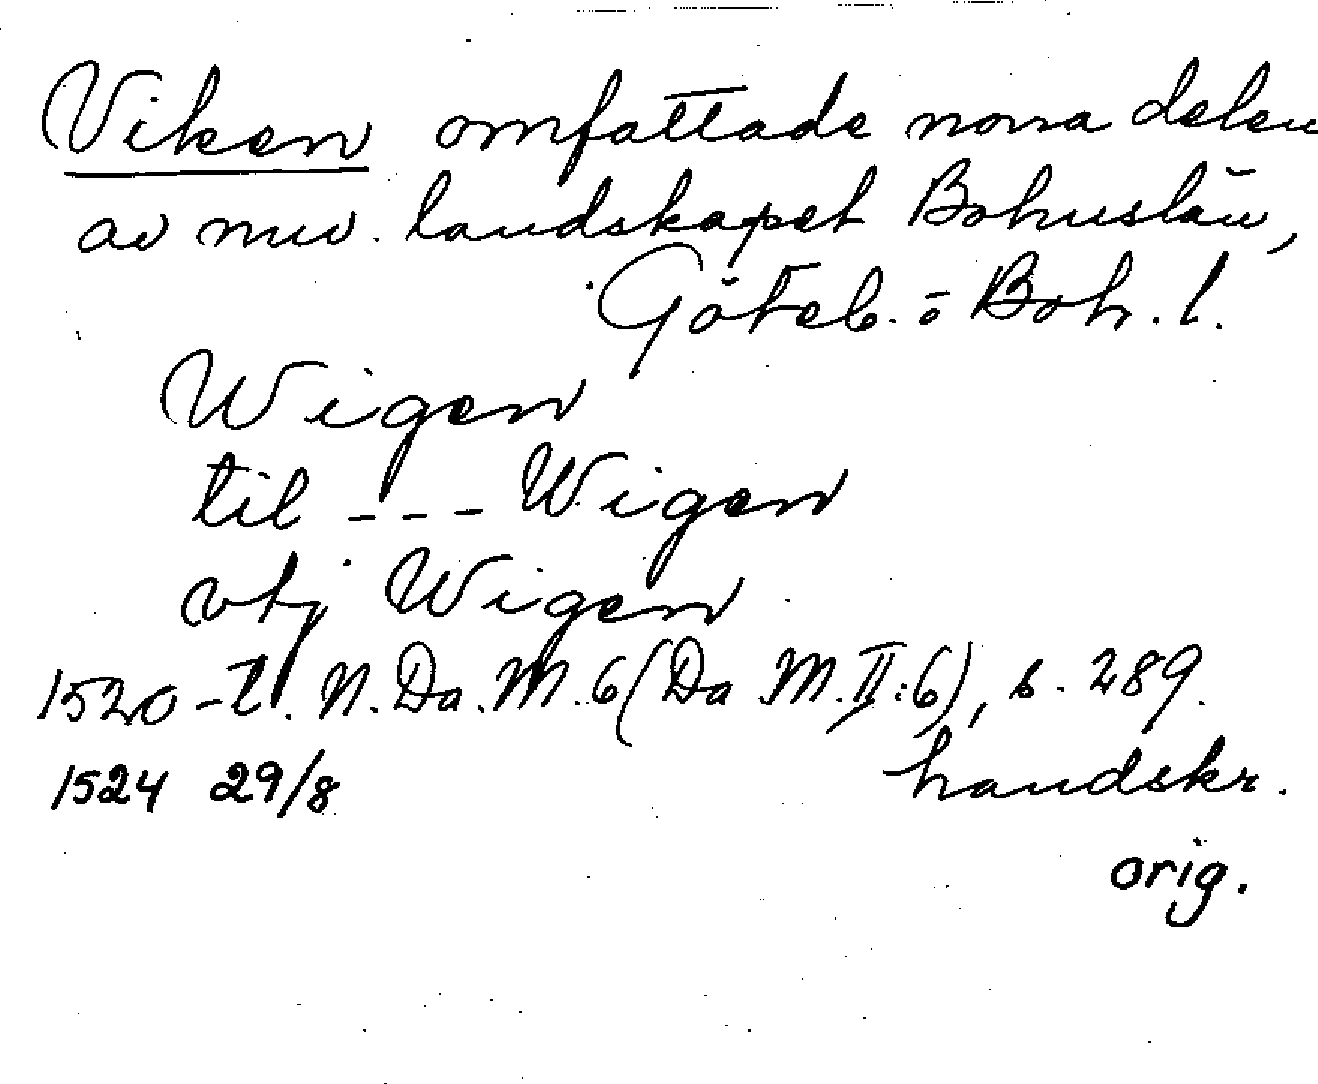 Viken omfattade norra delen
av nuv. landskapet Bohuslän,
Göteb. o Boh. l.
Wigen
til --- Wigen
vtj Wigen
1520-t. N. Da. M. 6 (Da M. II:6), s. 289.
1524 29/8 handskr.
orig.